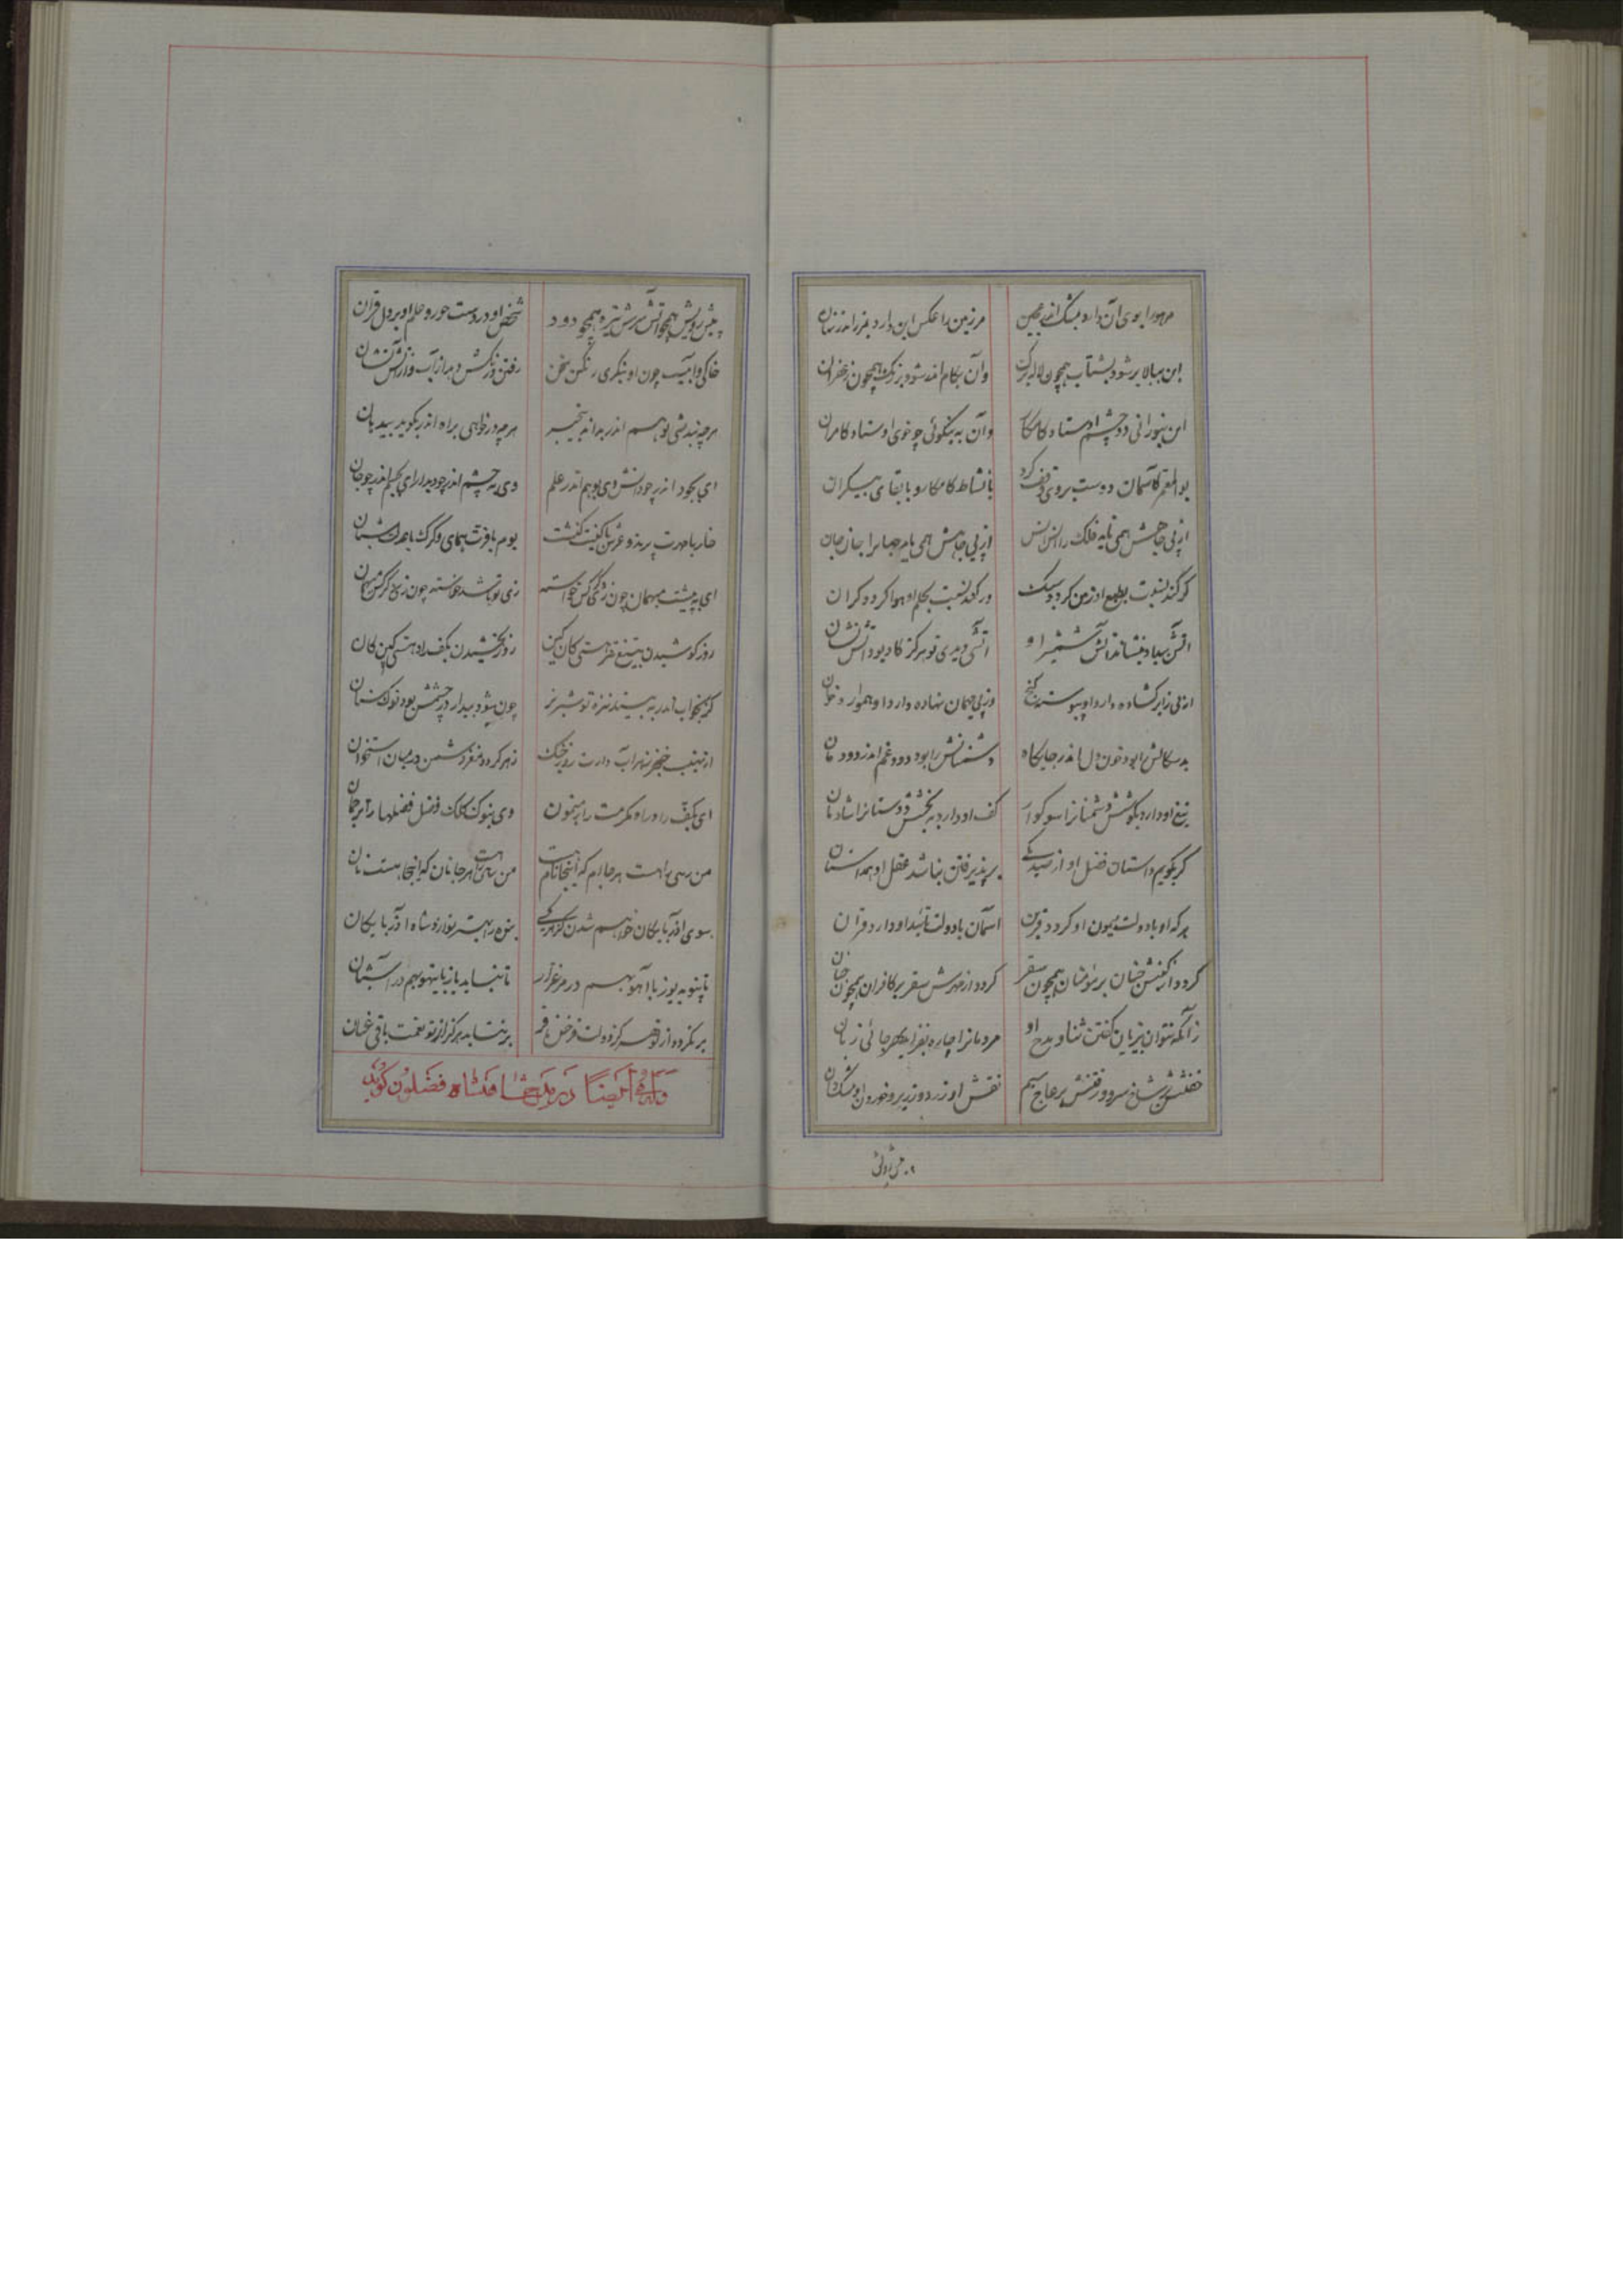 مر هوا را بوی آن دارد بمشک اندر عجین
مر زمین را عکس این دارد بزر اندر نهان
این ببالا بر شود بشتاب همچون لاله برگ
وآن بکام اندر شود بزرنگ همچون زعفران
این بنورانی دو چشم اوستاد کامکار
وآن به نیکوئی چو خوی اوستاد کامران
بوالمعمر کاسمان دوست بر وی وقف کرد
با نشاط کامکار و با بقای بیکران
از پی جاهش همی پاید فلک را انس انس
از پی جاهش همی باید جهانرا جان جان
گر کند نسبت بطبع او زمین گردد سبک
ور کند نسبت بحلم او هوا گردد گران
آتش بیداد بنشاند آتش شمشیر او
آتشی دیدی تو هرگز کاو بود آتش نشان
از پی زایر گشاده دارد او پیوسته گنج
وز پی مهمان نهاده دارد او هموار خوان
بدسگالش را بود خون دل اندر جایگاه
دشمنانش را بود دود غم اندر دودمان
تیغ او دارد بکوشش دشمنانرا سوگوار
کف او دارد به بخشش دوستانرا شادمان
گر بگویم داستان فضل او از صد یکی
بر پذیرفتن نباشد عقل او همداستان
هر که او با دولت میمون او گردد قرین
آسمان با دولت تأئید او دارد قران
گردد از کینش جنان بر مؤمنان همچون سقر
گردد از مهرش سقر بر کافران همچون جنان
زآنکه نتوان بیزبان گفتن ثنا و مدح او
مردمانرا چاره نبود از بهر جائی زبان
خفتنش بر شاخ سرو و رفتنش بر عاج سیم
نقش او زر و زریر و خوردن او مشک و بان
پیش رویش همچو آتش سرش تیره همچو دود
شخص او در دست حور و حلم او بر دل قران
خاکی و آبیست چون او بنگری رنگین سخن
رفتن و رنگش دهد از آب و از آتش نشان
هر چه بندیشی تو هم اندر بداند بیخبر
هر چه درخواهی براه اندر بگوید بیدهان
ای بجود اندر چو دانش وی بوهم اندر چو علم
وی به چشم اندر چو دیدار ای بجسم اندر چو جان
خار با مهرت پرند و عرش با کینت کنشت
بوم با فرت همای و گرگ با عدلت شبان
ای به پیشت میهمان چون زر گیتی خواسته
زی تو باشد خواسته چون زی دگر کس میهمان
روز کوشیدن بتیغ تو هستی کان کین
روز بخشیدن بکف راد هستی کین کان
گر بخواب اندر به بیند نیزه تو شیر نر
چون شود بیدار در چشمش بود نوک سنان
از نهیب خنجر زهراب دارت روز جنگ
زهر گردد مغز دشمن در میان استخوان
ای بکف راد راه مکرمت را رهنمون
وی بنوک کلک فضل فضلها را ترجمان
من رهی را هست هر جا نام که اینجا نام هست
من رهی را هست هر جا نان که اینجا هست نان
سوی آذربایکان خواهم شدن گر هر کسی
بنده را بهتر نوازد شاه آذربایکان
تا نپوید یوز با آهو بهم در مرغزار
تا نباید باز با تیهو بهم در آشیان
بر نگردد از تو هرگز دولت و فرخنده فر
بر نتابد هرگز از تو نعمت باقی عنان
وله ایضاً در مدح شاه فضلون گوید